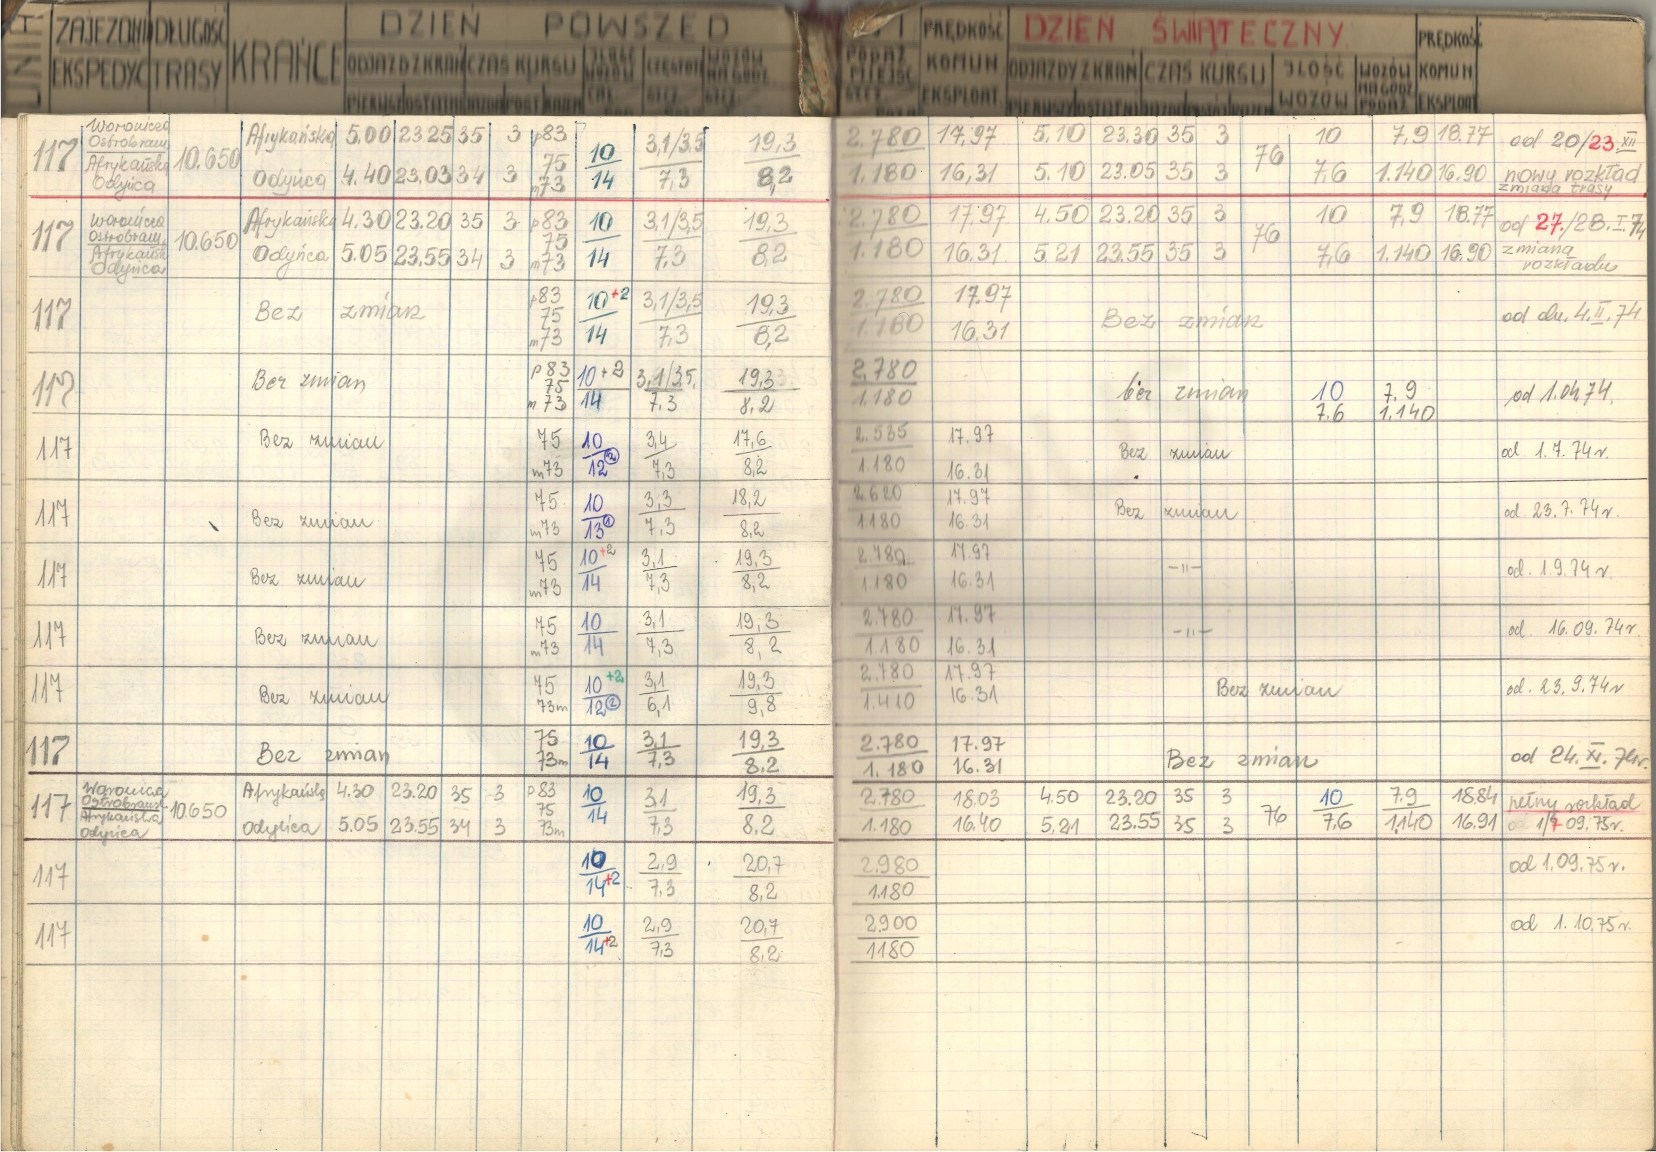 LINIA ZAJEZDNI DŁUGOŚĆ KRAŃCE DZIEŃ POWSZED PRĘDKOŚĆ DZIEŃ ŚWIĄTECZNY PRĘDKOŚĆ
EKSPEDYC TRASY ODJAZD Z KRAŃ CZAS KURSU ILOŚĆ WOZÓW CZĘSTOTL WOZÓW NA GODZ PODAŻ MIEJSC KOMUN ODJAZDY Z KRAŃ CZAS KURSU ILOŚĆ WOZÓW WOZÓW NA GODZ PODAŻ KOMUN
PIERWSZ OSTATNI JAZDA POST RAZEM SZCZ SZCZ SZCZ EKSPLOAT PIERWSZY OSTATNI JAZDA POST RAZEM EKSPLOAT
117 Woronicza Ostrobram. Afrykańska Odyńca 10.650 Afrykańska 5.00 23.25 35 3 p83 10 3,1/3,5 19,3 2.780 17.97 5.10 23.30 35 3 76 10 7,9 18.77 od 20/23.XII
Odyńca 4.40 23.03 34 3 75 m73 14 7,3 8,2 1.180 16,31 5.10 23.05 35 3 7,6 1.140 16.90 nowy rozkład
zmiana trasy
117 Woronicza Ostrobram. Afrykańsk Odyńca 10.650 Afrykańska 4.30 23.20 35 3 p83 10 3,1/3,5 19,3 2.780 17.97 4.50 23.20 35 3 76 10 7,9 18.77 od 27./28.I.74
Odyńca 5.05 23.55 34 3 75 m73 14 7,3 8,2 1.180 16.31 5.21 23.55 35 3 7,6 1.140 16.90 zmiana
rozkładu
117 Bez zmian p83 75 10+2 3,1/3,5 19,3 2.780 17.97 Bez zmian od dn. 4.II.74
m73 14 7,3 8,2 1.180 16.31
117 Bez zmian p83 75 10+2 3,1/3,5 19,3 2.780 bez zmian 10 7,9 od 1.04.74
m73 14 7.3 8.2 1.180 7.6 1.140
117 Bez zmian 75 10 3,4 17,6 2.535 17.97 Bez zmian od 1.7.74r.
m73 12② 7,3 8,2 1.180 16.31
117 Bez zmian 75 10 3,3 18,2 2.620 17.97 Bez zmian od 23.7.74r.
m73 13① 7,3 8,2 1180 16.31
117 Bez zmian 75 10+2 3,1 19,3 2.780 17.97 -"- od. 1.9.74r.
m73 14 7,3 8,2 1.180 16.31
117 Bez zmian 75 10 3,1 19,3 2.780 17.97 -"- od. 16.09.74r
m73 14 7,3 8,2 1.180 16.31
117 Bez zmian 75 10+2 3,1 19,3 2.780 17.97 Bez zmian od. 23.9.74r
73m 12② 6,1 9,8 1.410 16.31
117 Bez zmian 75 10 3,1 19,3 2.780 17.97 Bez zmian od 24.XI.74r.
73m 14 7,3 8.2 1.180 16.31
117 Woronicza Ostrobram. Afrykańska Odyńca 10.650 Afrykańska 4.30 23.20 35 3 p83 10 3,1 19,3 2.780 18.03 4.50 23.20 35 3 76 10 7,9 18.84 pełny rozkład
Odyńca 5.05 23.55 34 3 75 73m 14 7,3 8,2 1.180 16.40 5,21 23.55 35 3 7,6 1.140 16.91 09.75r.
117 10 2,9 20,7 2.980 od 1.09.75r.
14+2 7,3 8,2 1.180
117 10 2,9 20,7 2.900 od 1.10.75r.
14+2 7,3 8,2 1180